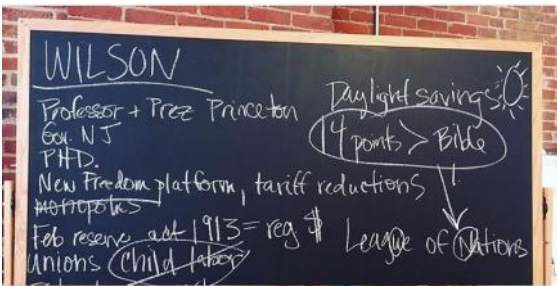 WILSON
Professor + Prez Princeton
Gov. NJ
PHD.
New Freedom platform, tariff reductions
monopolies
Feb reserve act 1913 = reg $
unions child labor
Daylight savings
14 points > Bible
League of Nations